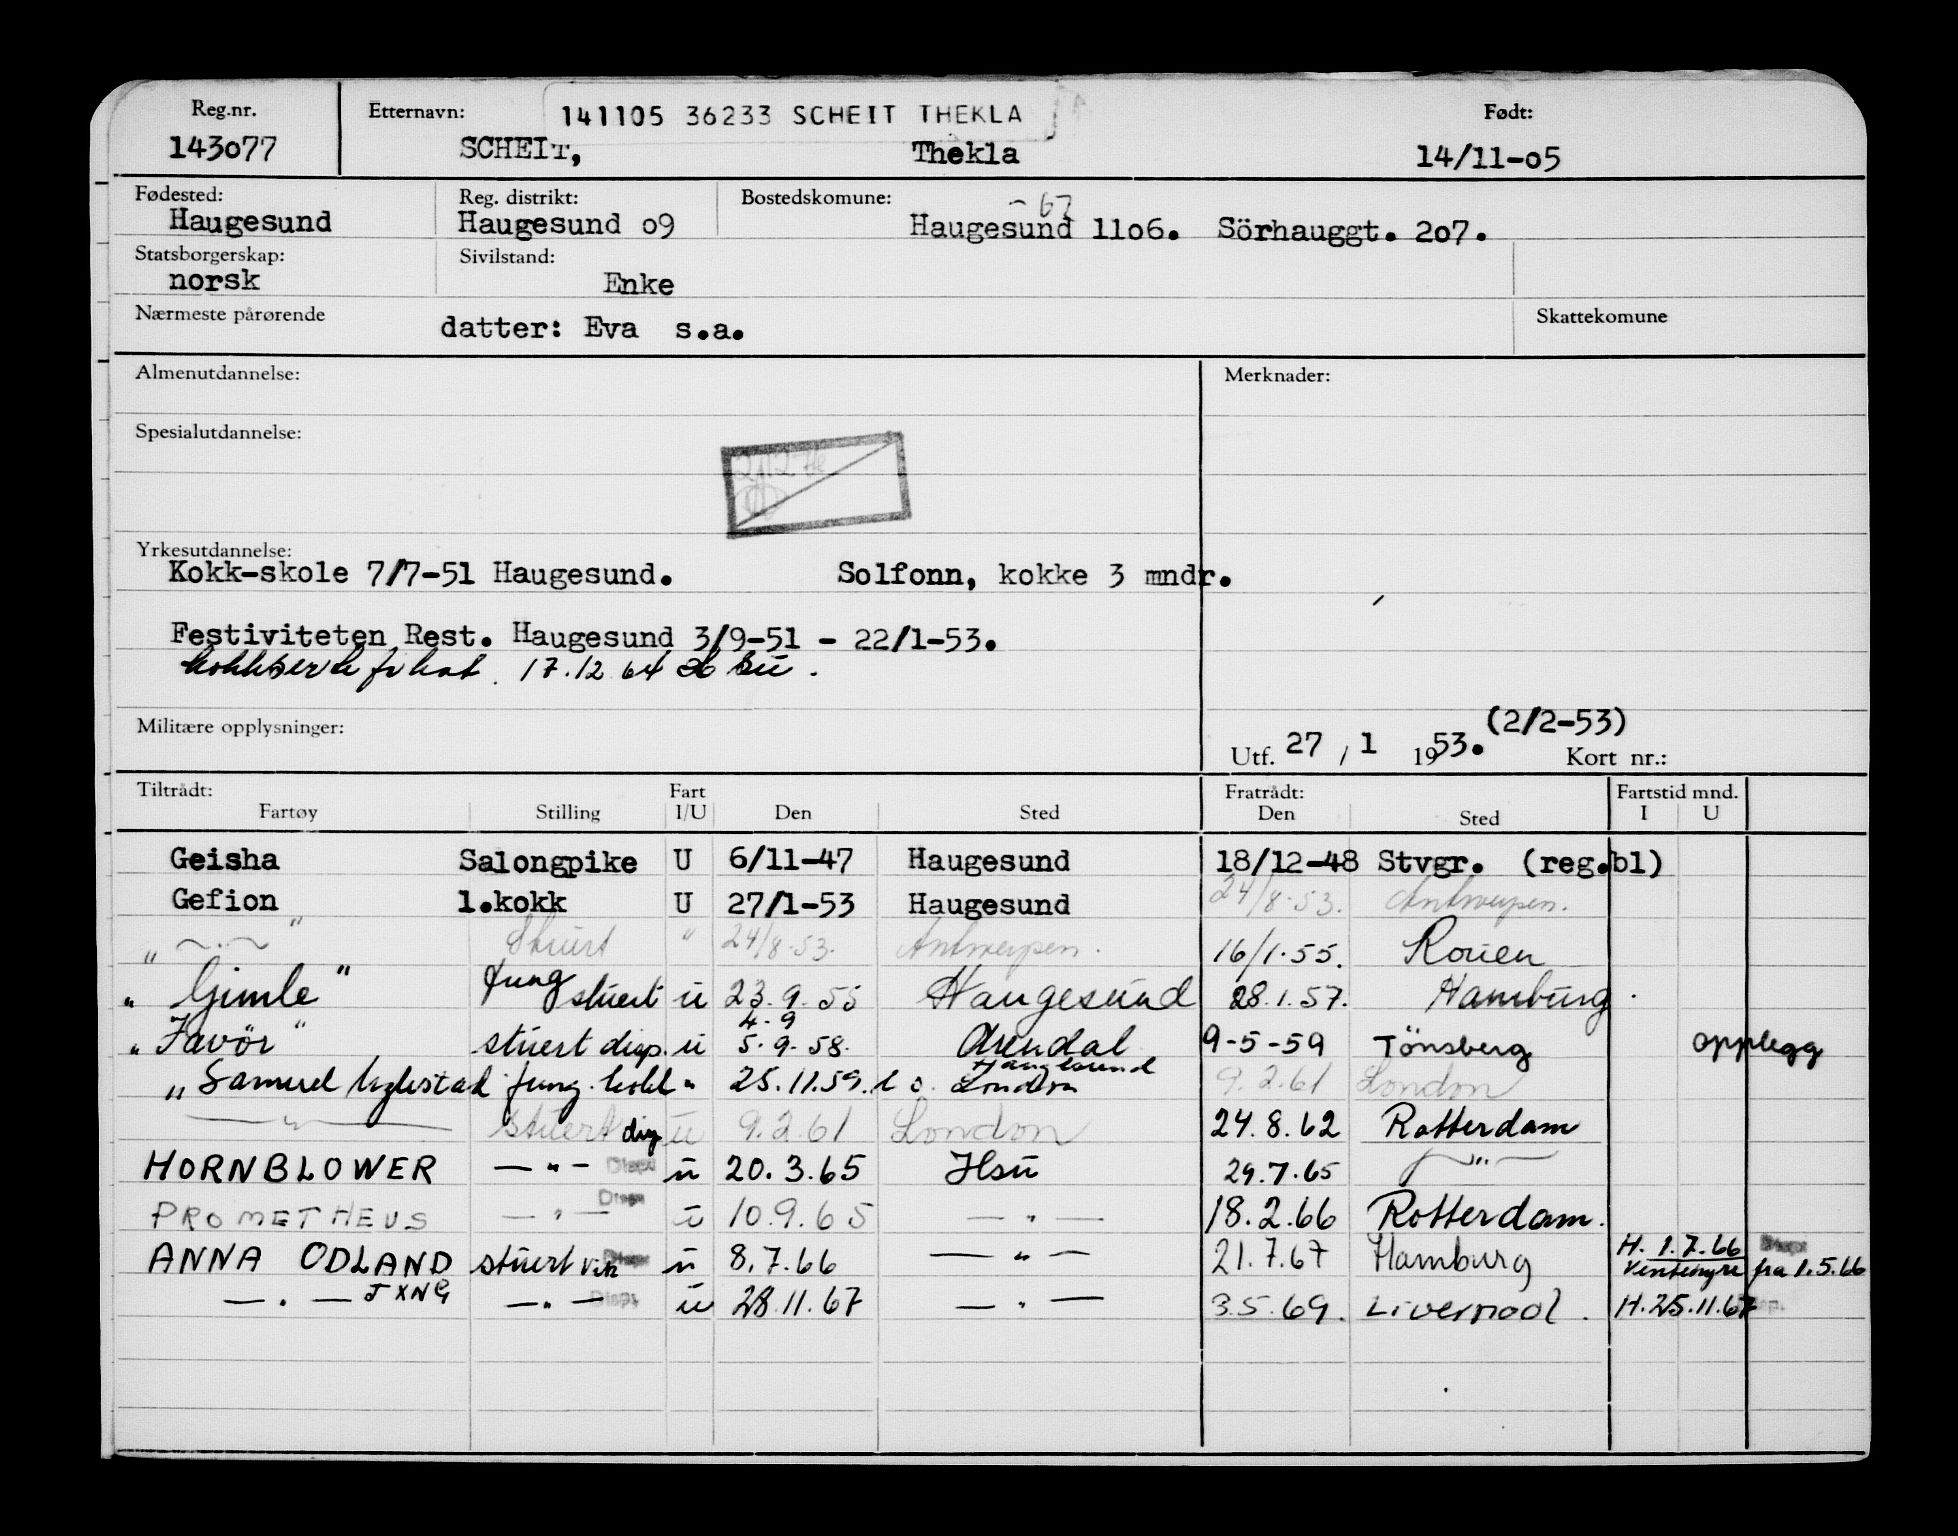 Reg.nr. Etternavn: 141105 36233 SCHEIT THEKLA Født:
143o77 SCHEIT, Thekla 14/11-o5
Fødested: Reg. distrikt: Bostedskomune: - 67
Haugesund Haugesund o9 Haugesund 11o6. Sörhauggt. 2o7.
Statsborgerskap: Sivilstand:
norsk Enke
Nærmeste pårørende datter: Eva s.a. Skattekomune
Almenutdannelse: Merknader:
Spesialutdannelse:
Yrkesutdannelse:
Kokk-skole 7/7-51 Haugesund. Solfonn, kokke 3 mndr.
Festiviteten Rest. Haugesund 3/9-51 - 22/1-53.
17.12.64
Militære opplysninger: (2/2-53)
Utf. 27 / 1 1953. Kort nr.:
Tiltrådt: Fart Fratrådt: Fartstid mnd.
Fartøy Stilling I/U Den Sted Den Sted I U
Geisha Salongpike U 6/11-47 Haugesund 18/12-48 Stvgr. (reg.bl)
Gefion 1.kokk U 27/1-53 Haugesund 24/8-53. Antwerpen.
" — " — " Stuert " 24/8-53. Antwerpen. 16/1-55. Rouen
" Gimle " Jung stuert u 23.9.55 Haugesund 28.1.57. Hamburg.
4.9
" Favör " stuert disp. u 5.9.58. Arendal 9-5-59 Tönsberg opplegg
Haugesund
" Samuel Ugelstad jung. kokk " 25.11.59. London 9.2.61 London
— " — stuert disp u 9.2.61 London 24.8.62 Rotterdam
HORNBLOWER — " — Disp. u 20.3.65 Hsu 29.7.65 — " —
PROMETHEUS — " — Disp. u 10.9.65 — " — 18.2.66 Rotterdam.
ANNA ODLAND stuert vik u 8.7.66 — " — 21.7.67 Hamburg H. 1.7.66
fra 1.5.66
— " — JXNG — " — Disp. u 28.11.67 — " — 3.5.69. Liverpool. H.25.11.67